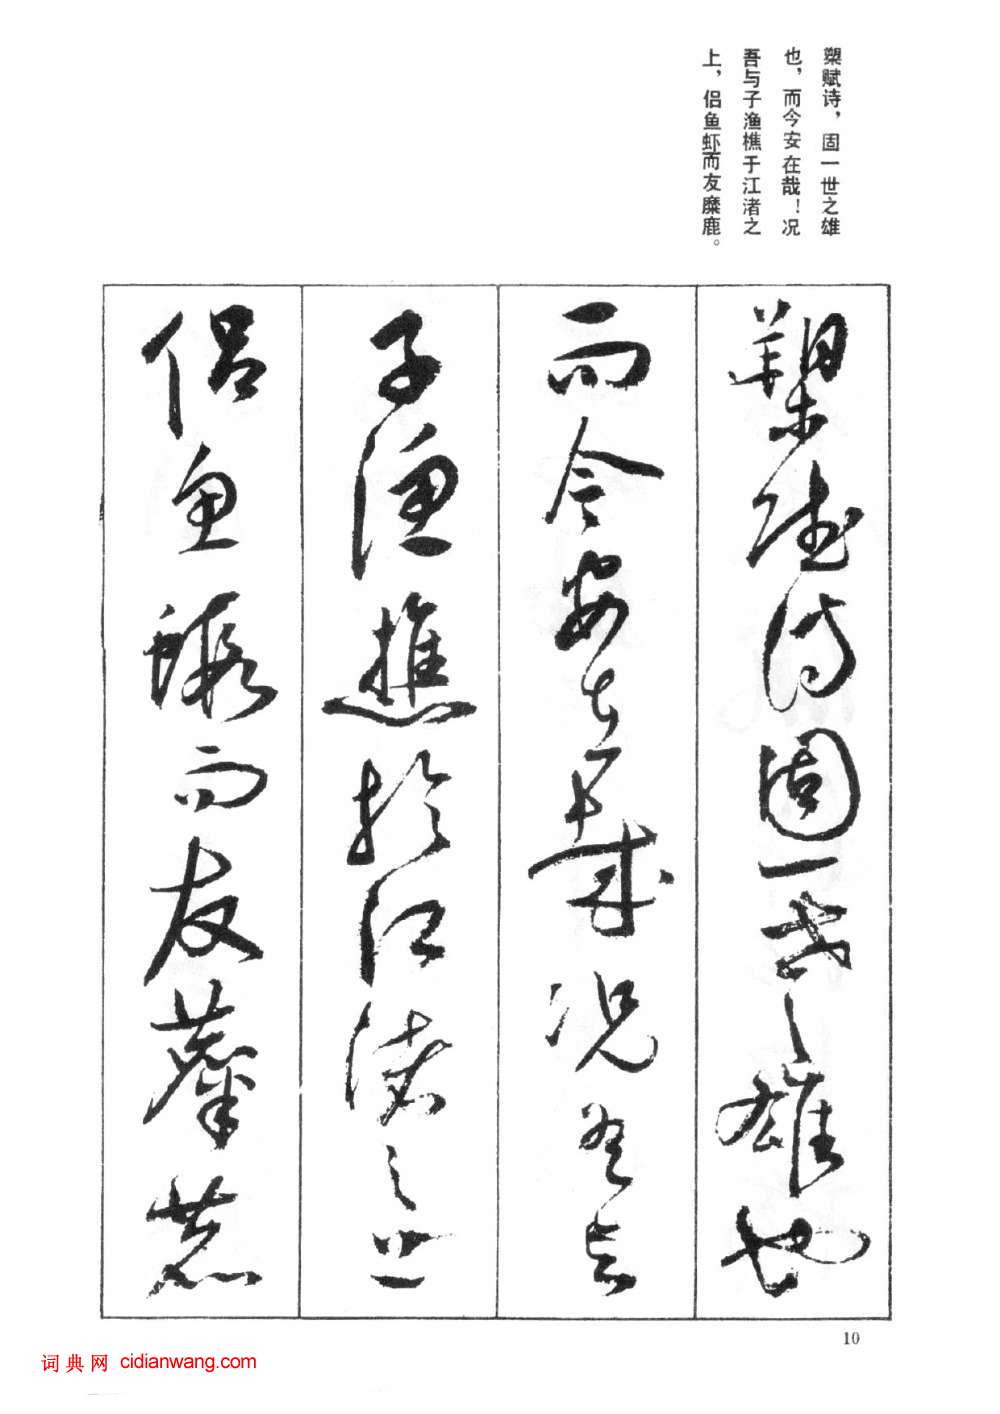 槊赋诗，固一世之雄
也，而今安在哉！况
吾与子渔樵于江渚之
上，侣鱼虾而友麋鹿。
槊賦诗固一世之雄也
而今安在哉况吾与
子渔樵於江渚之上
侣鱼蝦而友麋鹿
10
词典网 cidianwang.com